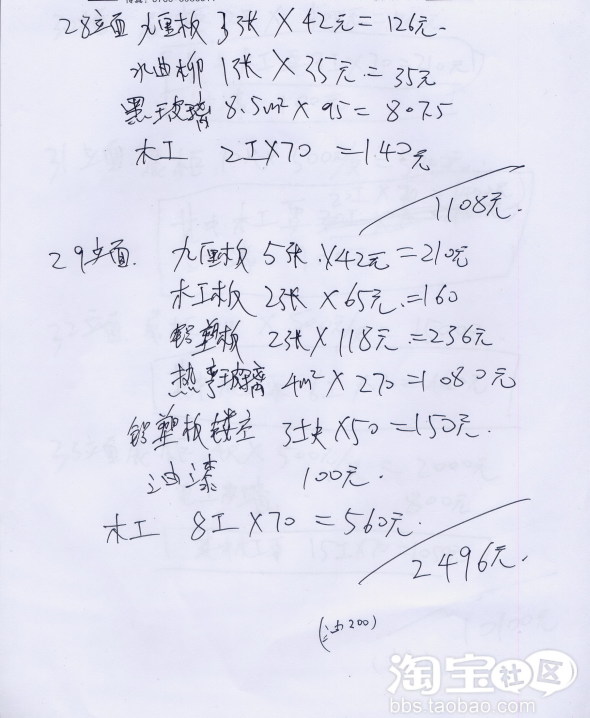 28立面 九厘板 3张 × 42元 = 126元.
水曲柳 1张 × 35元 = 35元
墨玻璃 8.5m² × 95 = 807.5
木工 2工×70 = 140元
1108元.
29立面. 九厘板 5张 ×42元 = 210元
木工板 2张 × 65元 = 160
铝塑板 2张 × 118元 = 236元
热弯玻璃 4m² × 270 = 1080元
铝塑板镂空 3块 ×50 = 150元.
油漆 100元.
木工 8工 ×70 = 560元.
2496元.
(油200)
淘宝社区
bbs.taobao.com